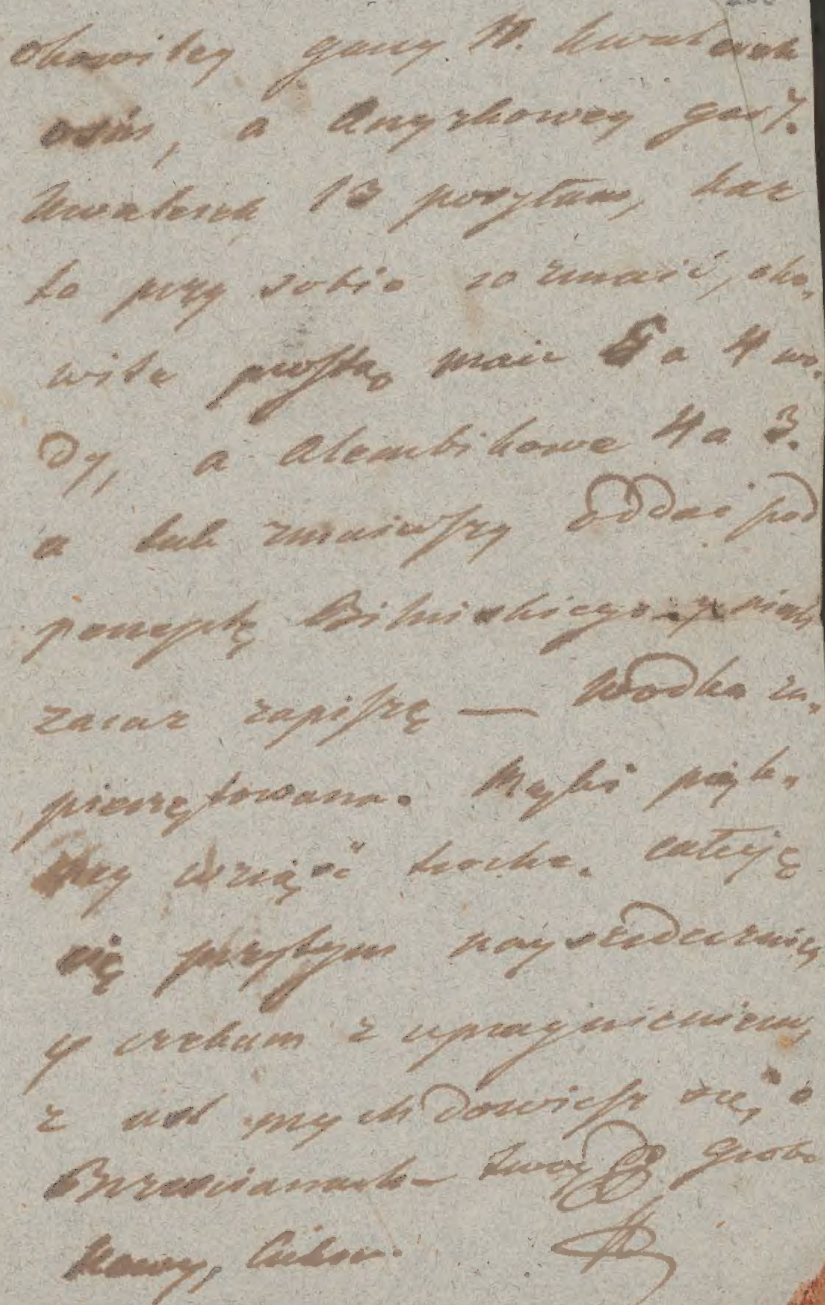 okowitey garcy H. kwaterek
osm, a Anyżkowey gar.
kwaterek 13 posyłam, każ
to przy sobie rozmaić, oko,
witę prostą maić 5 a 4 wo,
dy, a Alembikowę 4 a 3.
a tak zmaiwszy oddać pod
pompkę Bilnickiego y niech
zaraz zapiszę — Wodka za,
pieczętowana. Rybi pięk,
ney wziąść trochę. całuję
się przytym nayserdeczniey
y czekam z upragnieniem,
z ust mych dowiesz się, o
Brzezianach twoy do grobo
Nowy, Cukier.